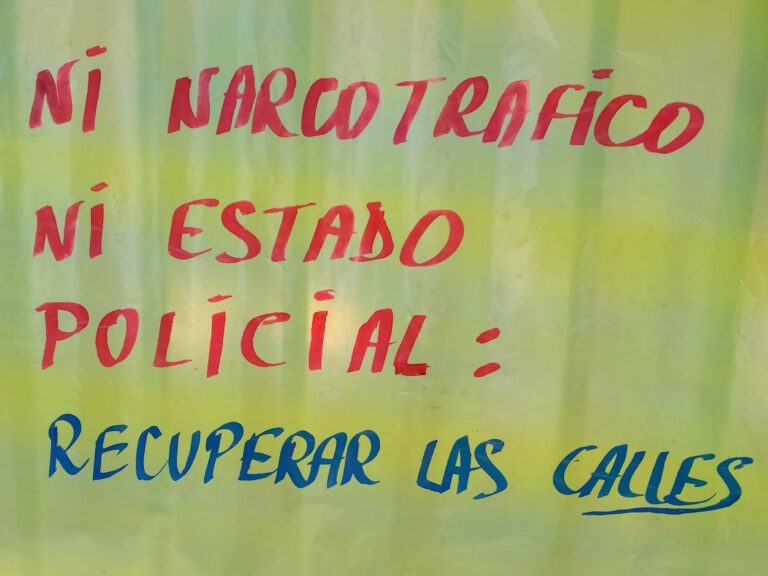 Ni NARCOTRAFiCO
Ni ESTADO
POLiCiAL:
RECUPERAR LAS CALLES